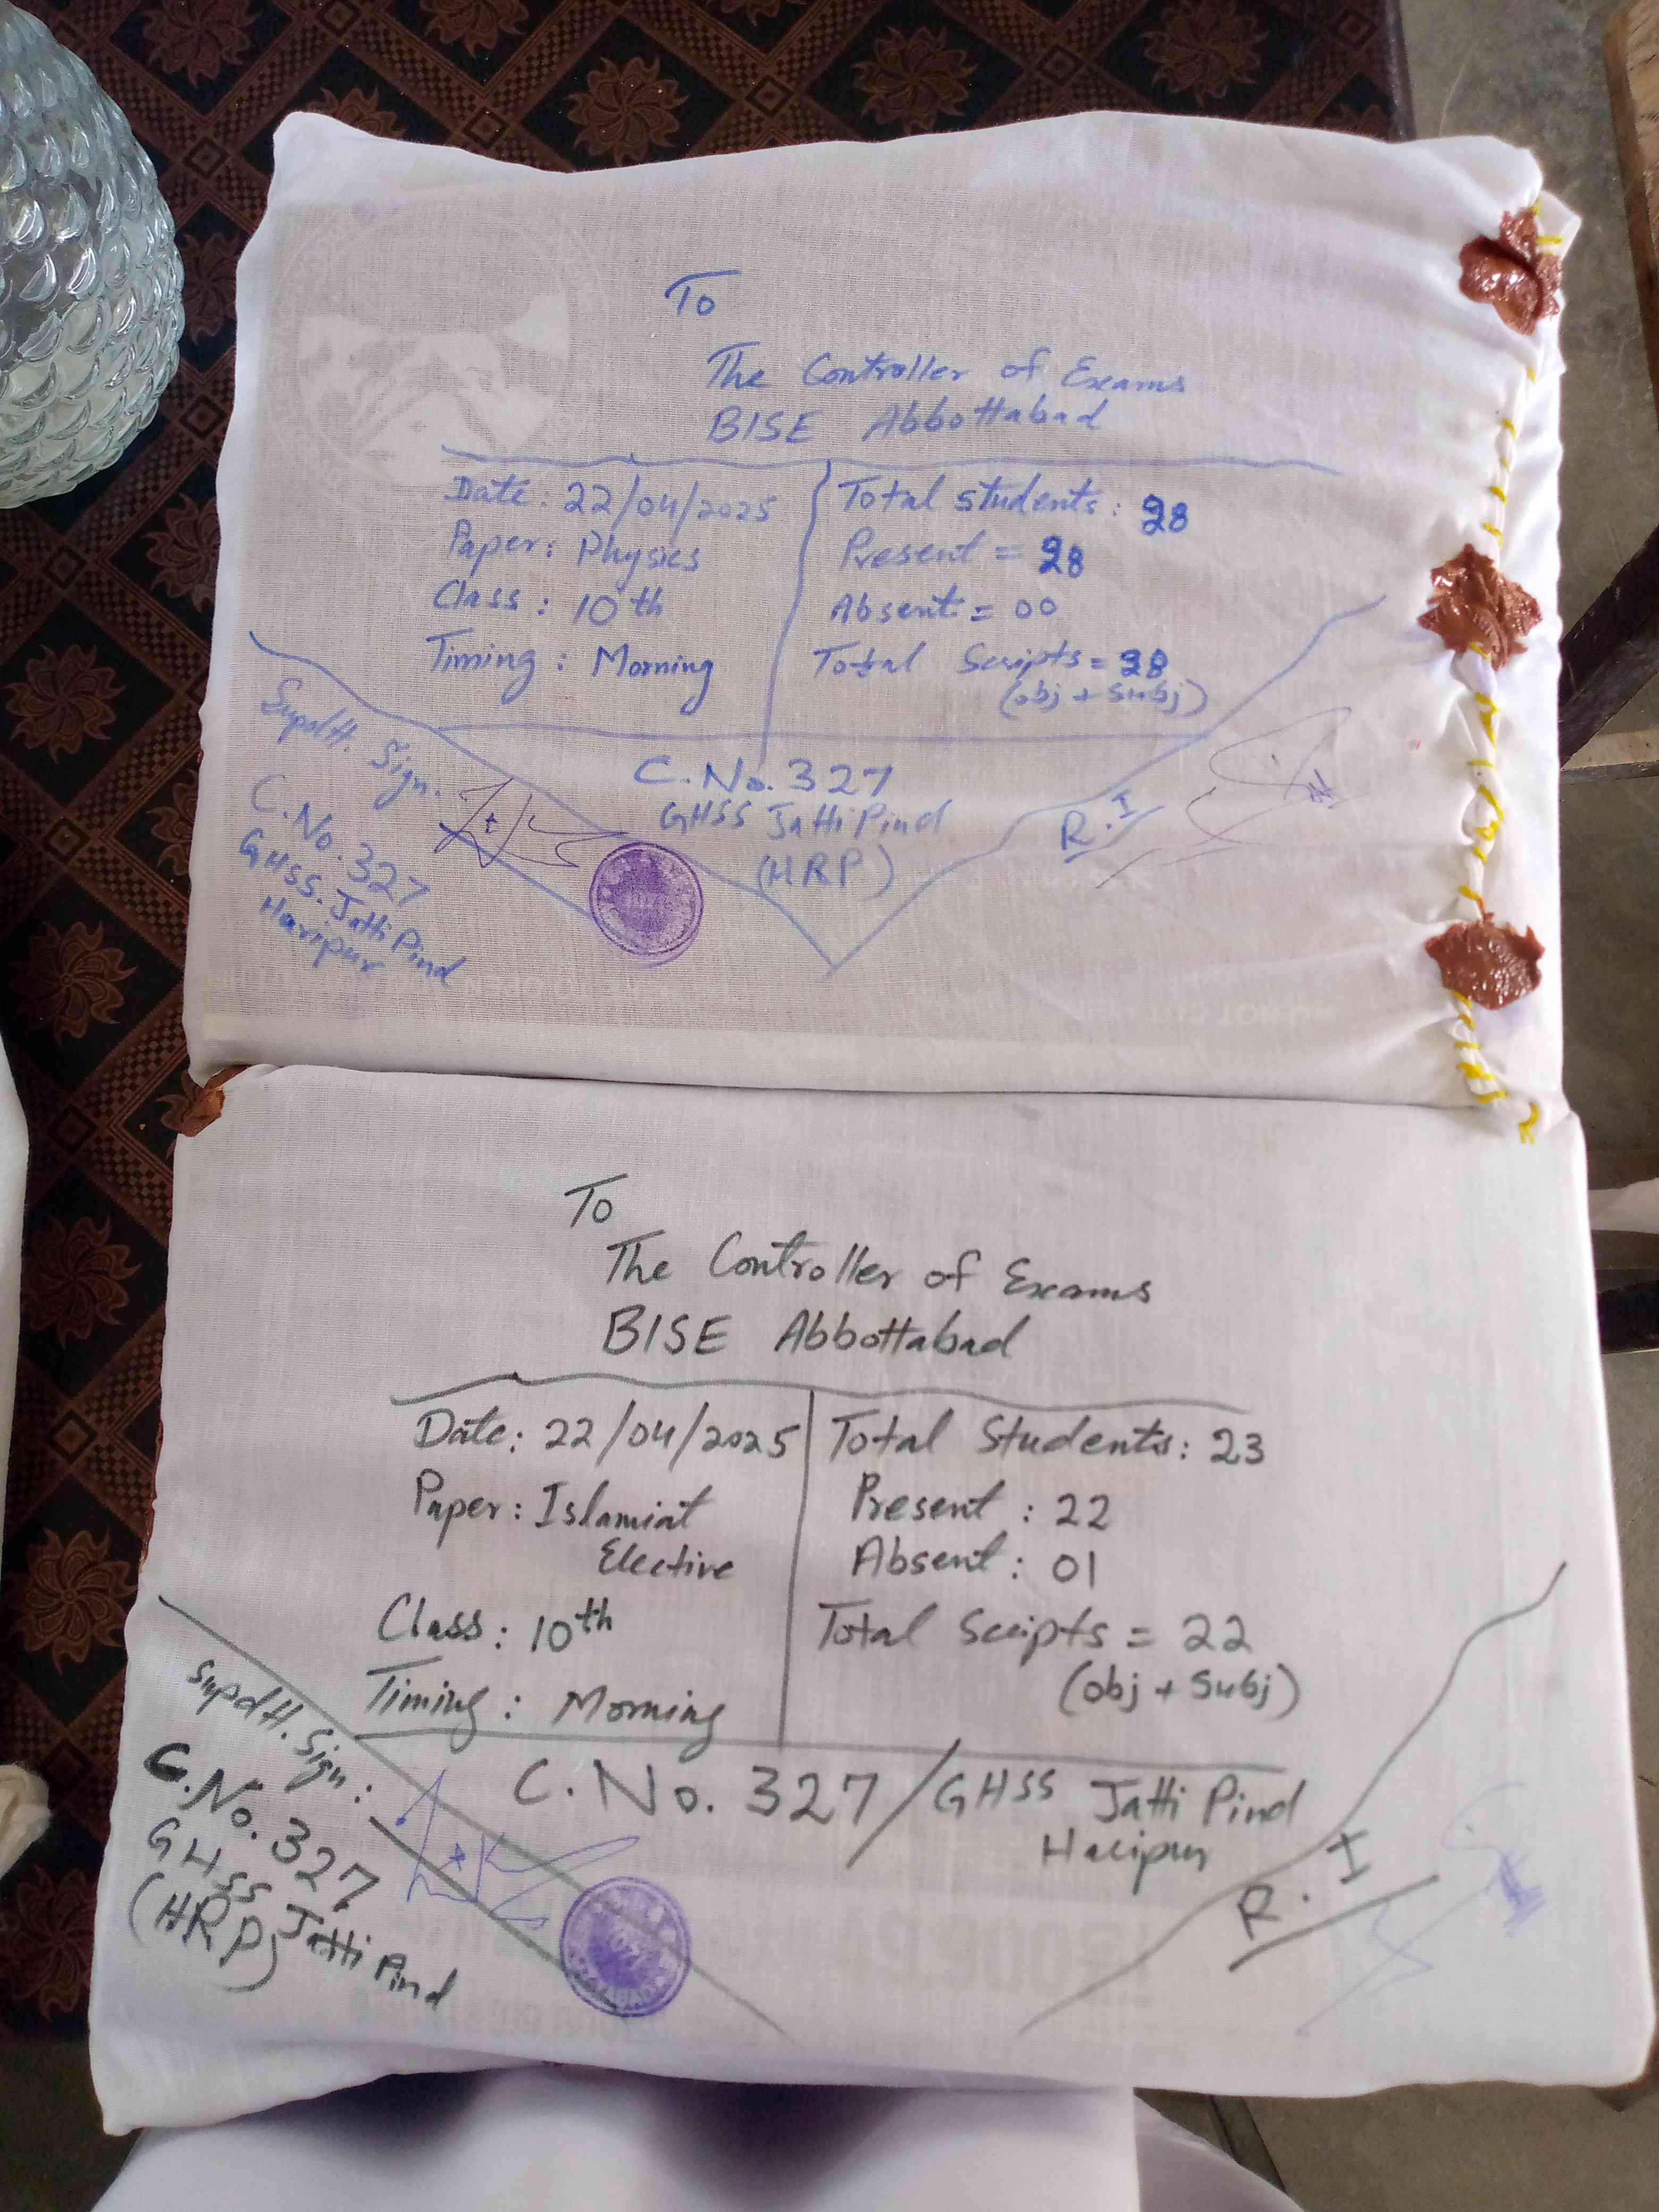 To
The Controller of Exams
BISE Abbottabad
Date: 22/04/2025
Paper: Physics
Class: 10th
Timing: Morning
Total Students: 28
Present = 28
Absent = 00
Total Scripts = 28
(obj + Subj)
C.No. 327
GHSS Jatti Pind
(HRP)
Supdtt. Sign.
C.No. 327
GHSS. Jatti Pind
Haripur
R.I
To
The Controller of Exams
BISE Abbottabad
Date: 22/04/2025
Paper: Islamiat
Elective
Class: 10th
Timing: Morning
Total Students: 23
Present: 22
Absent: 01
Total Scripts = 22
(obj + Subj)
C.No. 327/GHSS Jatti Pind
Haripur
Supdtt. Sign:
C.No. 327
GHSS Jatti Pind
(HRP)
R.I